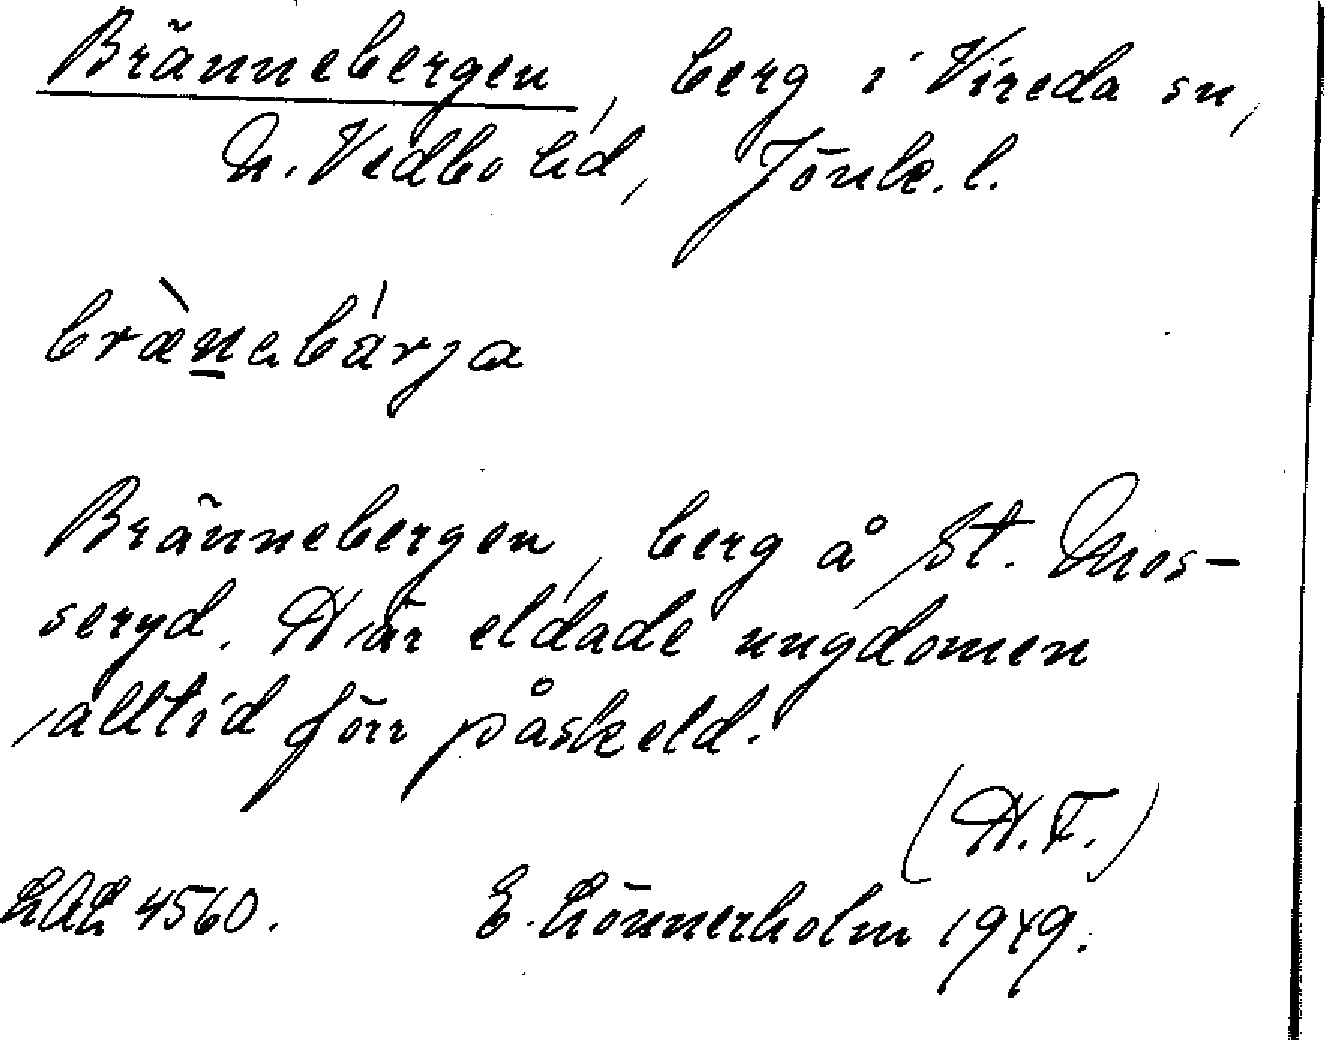 Brännebergen, berg i Vireda sn,
N. Vedbo hd, Jönk. l.
bræ̀nebárja
Brännebergen, berg å St. Mos-
seryd. Här eldade ungdomen
alltid förr påskeld.
(H.F.)
4560. E. Lönnerholm 1949.